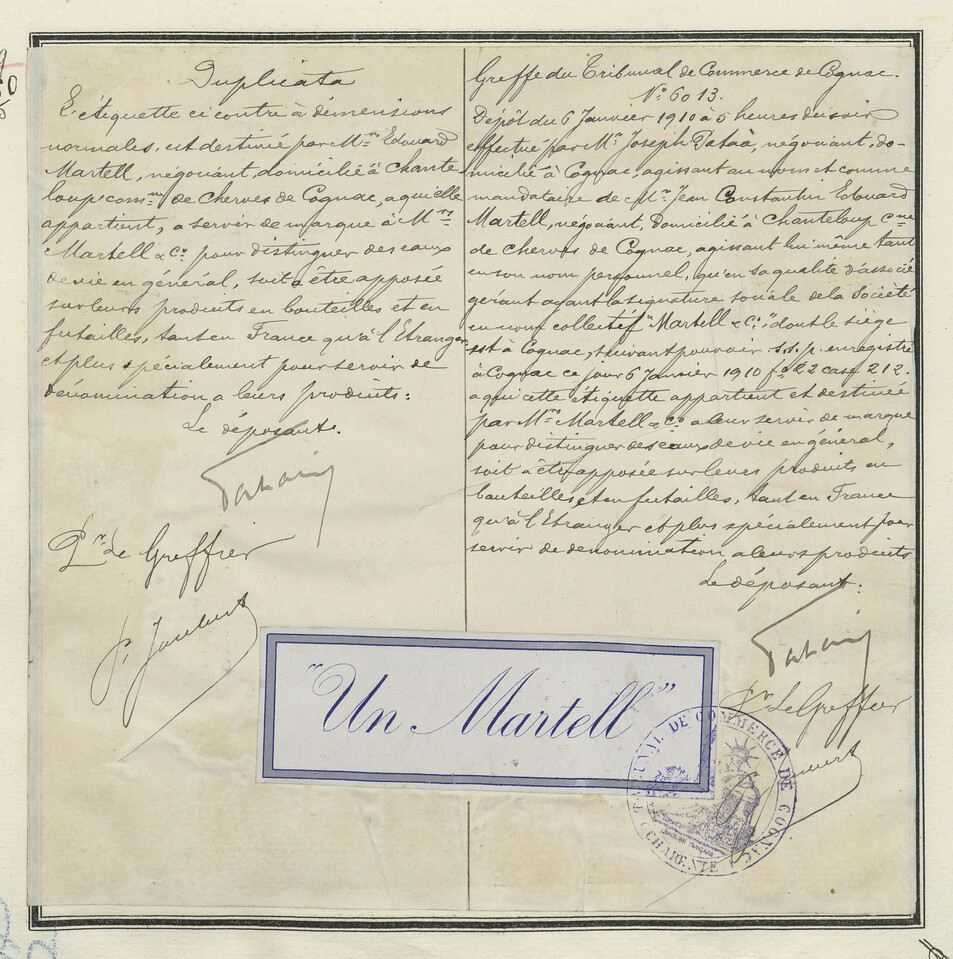 Duplicata
L'étiquette ci contre à dimensions
normales, est destinée par Mr. Edouard
Martell, négociant, domicilié à Chante
loup com.ne de Cherves de Cognac, a qui elle
appartient, a servir de marque à M.rs
Martell & Co. pour distinguer des eaux
de vie en général, soit a être apposée
sur leurs produits en bouteilles et en
futailles, tant en France qu'à l'Etranger
et plus spécialement pour servir de
dénomination a leurs produits:
Le déposant.
P.r Le Greffier
Greffe du Tribunal de Commerce de Cognac.
No. 6013.
Dépôt du 6 Janvier 1910 à 5 heures du soir
effectué par Mr. Joseph, négociant, do-
micilié à Cognac, agissant au nom et comme
mandataire de Mr. Jean Constantin Edouard
Martell, négociant, Domicilié à Chanteloup c.ne
de Cherves de Cognac, agissant lui même tant
en son nom personnel, qu'en sa qualité d'associé
gérant ayant la signature sociale de la Société
en nom collectif "Martell & Co.", dont le siège
est à Cognac, suivant pouvoir s.s.p. enregistré
à Cognac ce jour 6 Janvier 1910 fo. 22 case 212.
a qui cette étiquette appartient et destinée
par M.rs Martell & Co. a leur servir de marque
pour distinguer des eaux de vie en général,
soit a être apposée sur leurs produits en
bouteilles et en futailles, tant en France
qu'à l'Etranger et plus spécialement pour
servir de dénomination a leurs produits
Le déposant:
P.r Le Greffier
"Un Martell"
TRIBUNAL DE COMMERCE DE COGNAC
CHARENTE